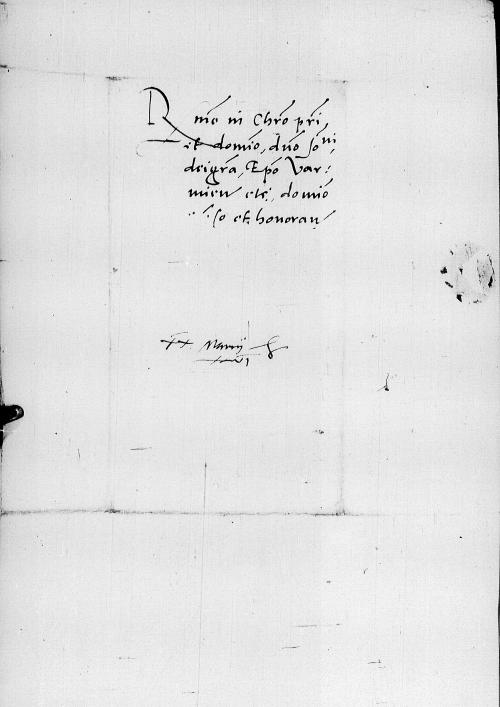 Rme in Chro pri
et domio, dno Jo ni
dei gra, Epo Var:
mien etc, domio
so et honoran